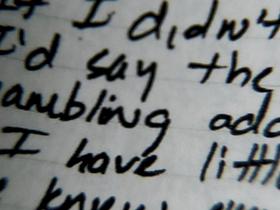 If I didn't
I'd say the
ambling add
I have littl